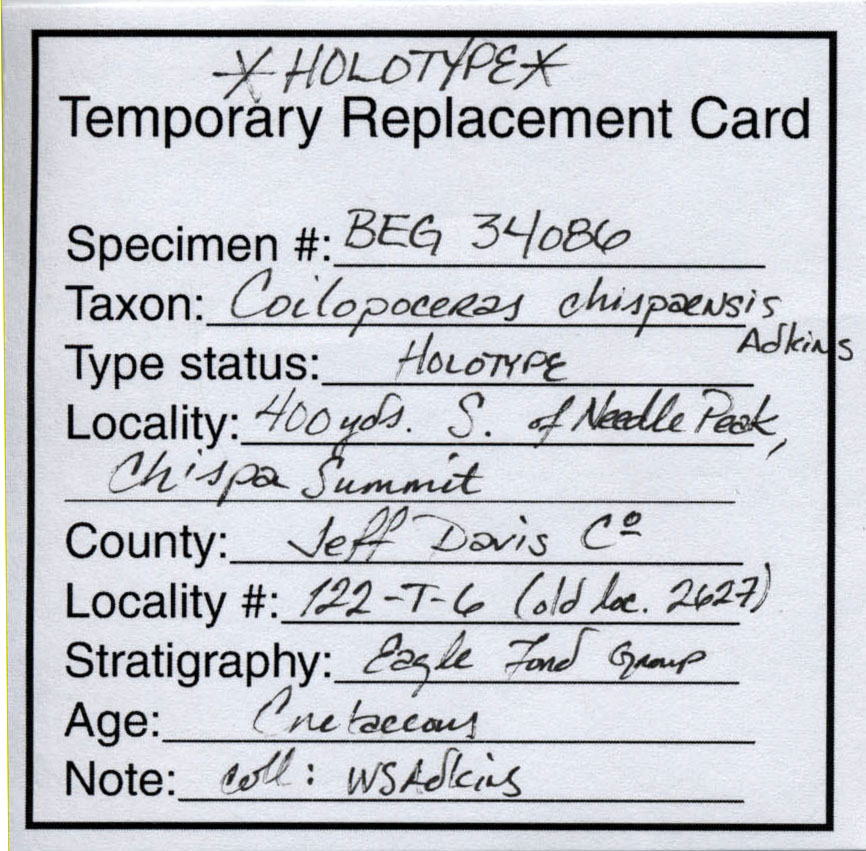 *HOLOTYPE*
Temporary Replacement Card
Specimen #: BEG 34086
Taxon: Coilopoceras chispaensis
Adkins
Type status: HOLOTYPE
Locality: 400 yds. S. of Needle Peak,
Chispa Summit
County: Jeff Davis Cº
Locality #: 122-T-6 (old loc. 2627)
Stratigraphy: Eagle Ford Group
Age: Cretaceous
Note: coll: WSAdkins